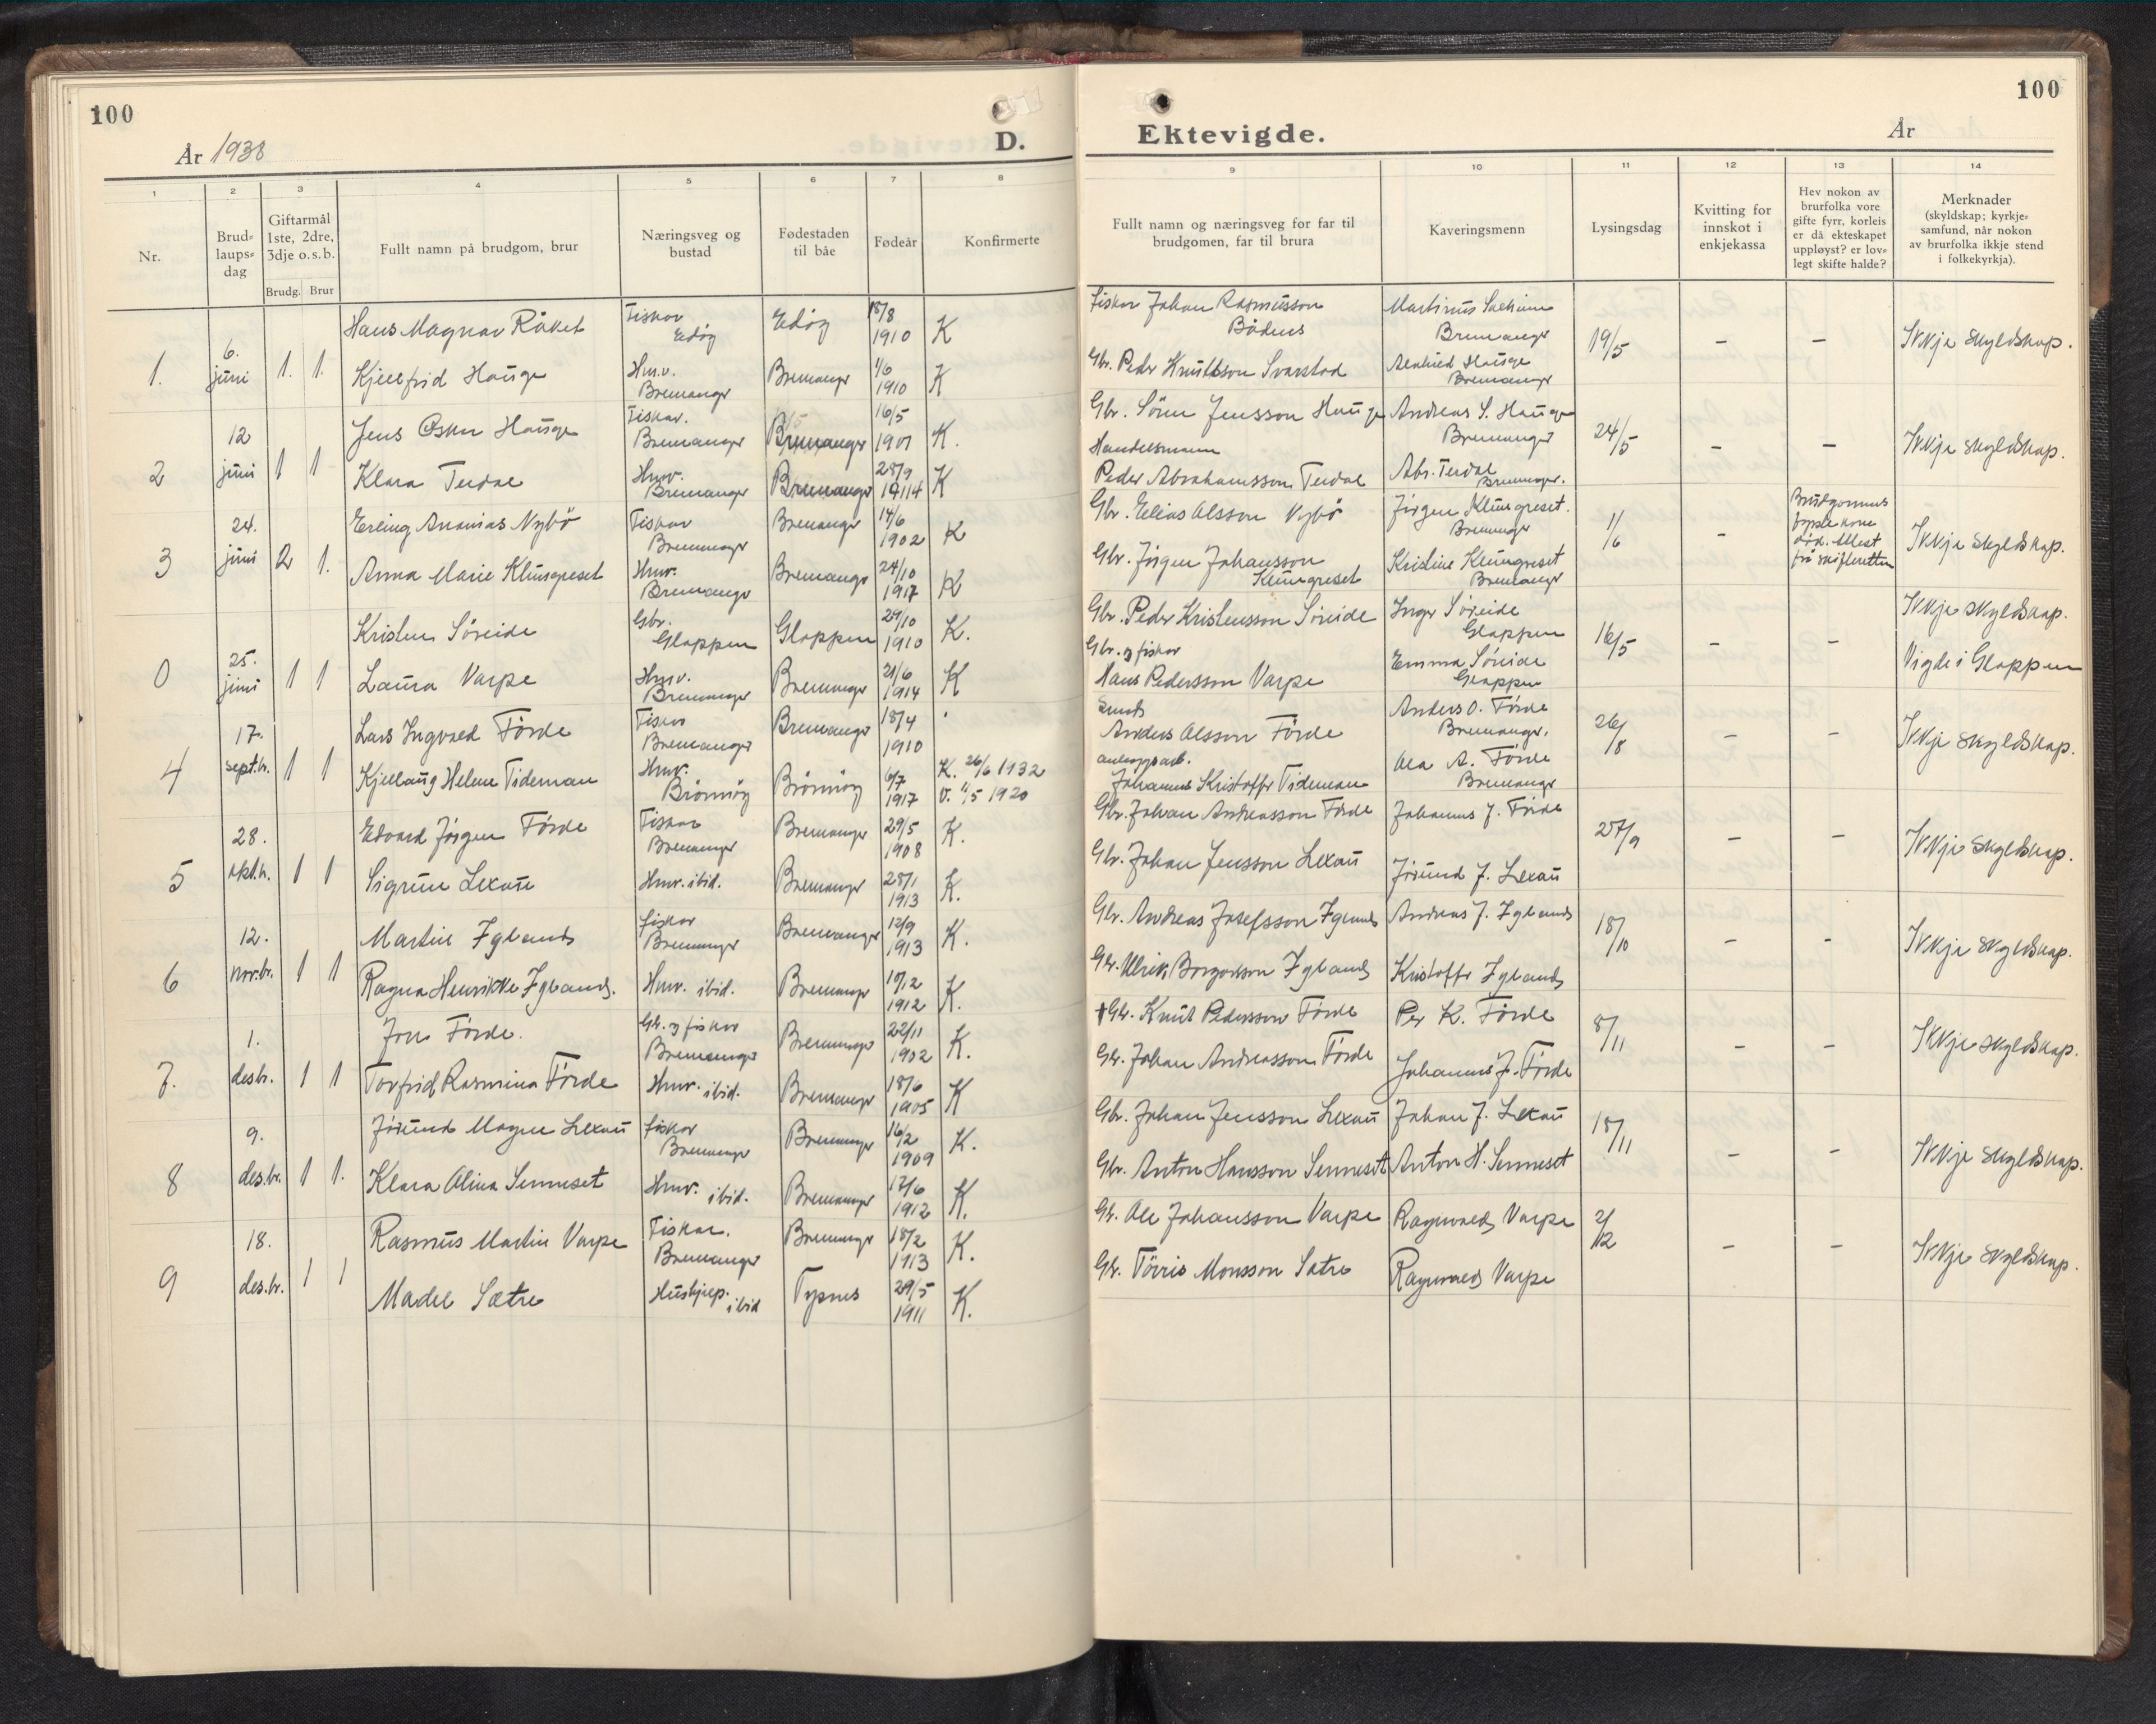 100
År 1938
D.
1 2 3 4 5 6 7 8
Nr.
Brud-
laups-
dag
Giftarmål
1ste, 2dre,
3dje o. s. b.
Brudg. Brur
Fullt namn på brudgom, brur
Næringsveg og
bustad
Fødestaden
til båe
Fødeår
Konfirmerte
Hans Magnar Råket Fiskar Edøy Edøy 18/8 1910 K
1. 6. juni 1. 1.
Kjellfrid Hauge Hmv. Bremanger Bremanger 1/6 1910 K
Jens Oskar Hauge Fiskar. Bremanger Bremanger 16/5 1901 K.
2 12 juni 1 1
Klara Terdal Hmv. Bremanger Bremanger 28/9 1914 K
Erling Ananias Nybö Fiskar Bremanger Bremanger 14/6 1902 K
3 24. juni 2 1.
Anna Marie Klungreset Hmv. Bremanger Bremanger 24/10 1917 K
Kristen Söreide Gbr. Gloppen Gloppen 29/10 1910 K.
0 25. juni 1 1
Laura Varpe Hmv. Bremanger Bremanger 21/6 1914 K
Lars Ingvald Förde Fiskar Bremanger Bremanger 18/4 1910
4 17. sept.br. 1 1
Kjellaug Helene Tideman Hmv. Brönnöy Brönnöy 6/7 1917 K. 26/6 1932
V. 1/5 1920
Edvard Jörgen Förde Fiskar Bremanger Bremanger 29/5 1908 K.
5 28. okt.br. 1 1
Sigrun Lexau Hmv. ibid. Bremanger 28/1 1913 K.
Martin Igland fiskar Bremanger Bremanger 12/9 1913 K.
6 12. nov.br. 1 1
Ragna Henrikke Igland. Hmv. ibid. Bremanger 18/12 1912 K.
Jon Förde. Gbr. og fiskar Bremanger Bremanger 22/11 1902 K.
7. 1. des.br. 1 1
Torfrid Rasmina Förde Hmv. ibid. Bremanger 18/6 1905 K
Jörund Magne Lexau fiskar Bremanger Bremanger 16/2 1909 K.
8 9. des.br. 1 1.
Klara Alina Senneset Hmv. ibid. Bremanger 17/6 1912 K.
Rasmus Martin Varpe Fiskar. Bremanger Bremanger 18/2 1913 K.
9 18. des.br. 1 1
Madel Sætre Hushjelp. ibid 29/5 1911 K.
100
Ektevigde.
År
9 10 11 12 13 14
Fullt namn og næringsveg for far til
brudgomen, far til brura
Kaveringsmenn
Lysingsdag
Kvitting for
innskot i
enkjekassa
Hev nokon av
brurfolka vore
gifte fyrr, korleis
er då ekteskapet
uppløyst? er lov-
legt skifte halde?
Merknader
(skyldskap; kyrkje-
samfund, når nokon
av brurfolka ikkje stend
i folkekyrkja).
Fiskar Johan Rasmusson Martinus
Bremanger 19/5 – – Ikkje skyldskap.
Gbr. Peder Knutsson Svarstad Hauge
Bremanger
Gbr. Sören Jensson Hauge Andreas S. Hauge
Bremanger 24/5 – – Ikkje skyldskap.
Handelsmann
Peder Abrahamsson Terdal Abr. Terdal
Bremanger.
Gbr. Elias Olsson Nybö Jörgen Klungreset.
Bremanger 1/6 – Brudgommens
fyrste kone
död. Attest
frå skifteretten Ikkje skyldskap.
Gbr. Jörgen Johansson
Klungreset Kristine Klungreset
Bremanger
Gbr. Peder Kristensson Söreide Inger Söreide
Gloppen 16/5 – – Ikkje skyldskap.
Gbr. og fiskar
Hans Pedersson Varpe Emma Söreide
Gloppen Vigde i Gloppen
Smed
Anders Olsson Förde Anders O. Förde
Bremanger. 26/8 – – Ikkje skyldskap.
anleggsarb.
Johannes Kristoffer Tideman Ola A. Förde
Bremanger
Gbr. Johan Andreasson Förde Johannes J. Förde
27/9 – – Ikkje skyldskap.
Gbr. Johan Jensson Lexau Jörund J. Lexau
Gbr. Andreas Josefsson Igland Andreas J. Igland
18/10 – – Ikkje skyldskap.
Gbr. Ulrik Igland Kristoffer Igland
Gbr. Knut Pedersson Förde Per K. Förde
8/11 – – Ikkje skyldskap.
Gbr. Johan Andreasson Förde Johannes J. Förde
Gbr. Johan Jensson Lexau Johan J. Lexau
18/11 – – Ikkje skyldskap.
Gbr. Anton Hansson Senneset Anton H. Senneset
Gbr. Ole Johansson Varpe Ragnvald Varpe
2/12 – – Ikkje skyldskap.
Gbr. Törris Monsson Sætre Ragnvald Varpe